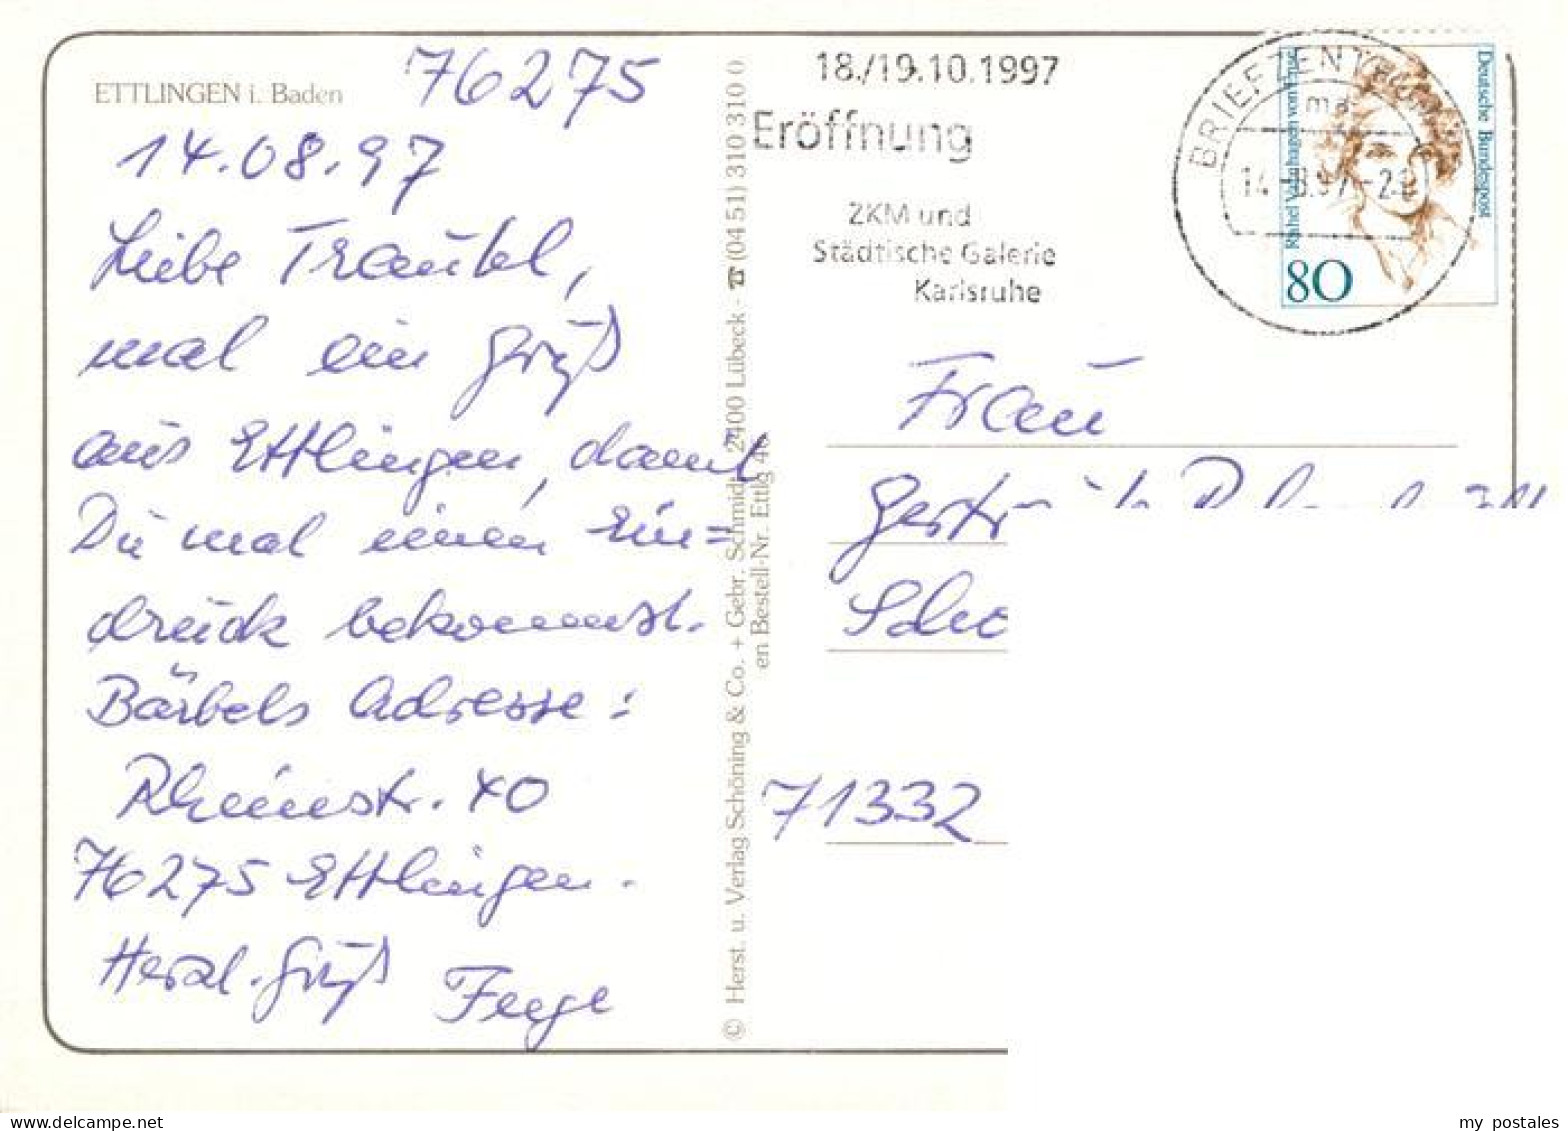 ETTLINGEN i. Baden
76275
14.08.97
Liebe Trautel,
mal ein Gruß
aus Ettlingen, damit
Du mal einen Ein=
druck bekommst.
Bärbels Adresse:
Rheinstr. 40
76275 Ettlingen.
Herzl. Gruß
© Herst. u. Verlag Schöning & Co. + Gebr. Schmidt, 2400 Lübeck - ☎ (04 51) 310 310 0
en Bestell-Nr. Ettlg
18./19.10.1997
Eröffnung
ZKM und
Städtische Galerie
Karlsruhe
BRIEFZENTRUM
ma
Rahel Varnhagen von Ense
Deutsche Bundespost
80
Frau
71332
delcampe.net
my_postales